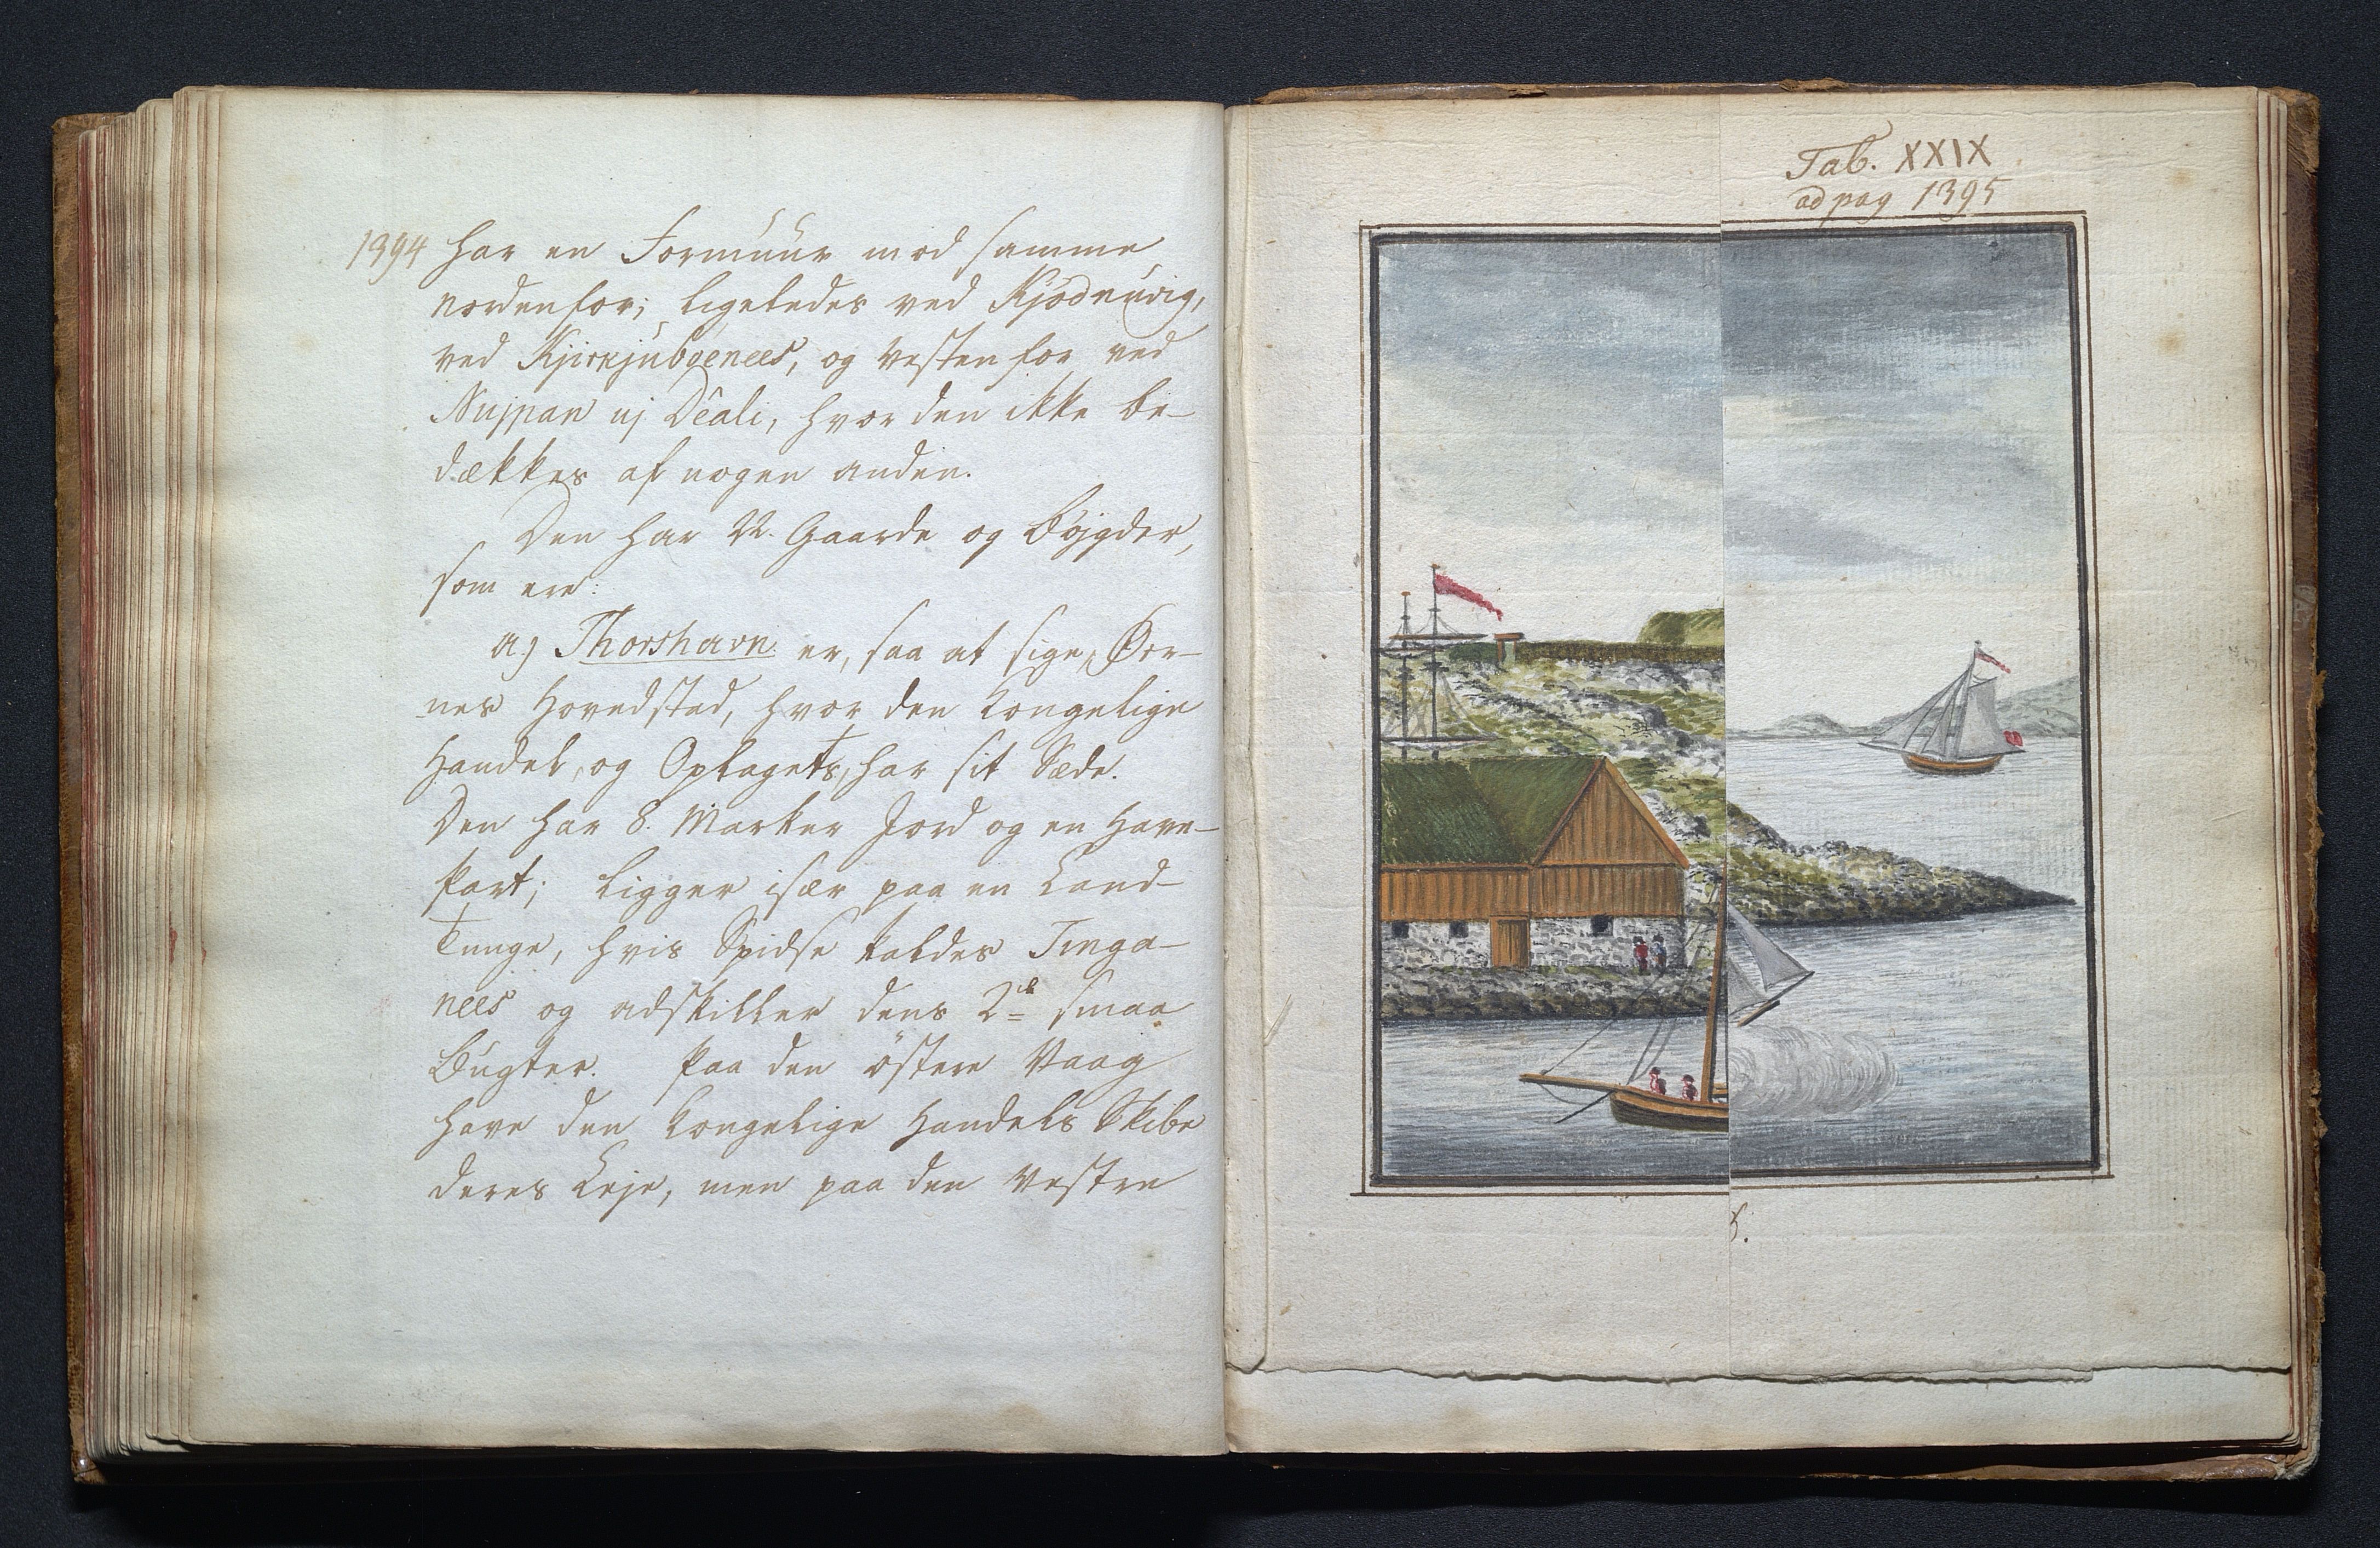 1394 har en Formuur mod samme
nordenfor; ligeledes ved Kjödnuvig,
ved Kjirkjubøenees, og vesten for ved
Nujpan uj Déali, hvor den ikke be-
dækkes af nogen anden.
Den har 22. Gaarde og Böjgder,
som ere:
a.) Thorshavn. er, saa at sige, Øer-
nes Hovedstad, hvor den Kongelige
Handel, og Oplagets, har sit Sæde.
Den har 8. Marker Jord og en Have-
part; ligger især paa en Land-
Tunge, hvis Spidse kaldes Tinga-
nees og adskiller dens 2de smaa
Bugter. Paa den östere Vaag
have den Kongelige Handels Skibe
deres Leje, men paa den Vestre
Tab. XXIX
ad pag 1395